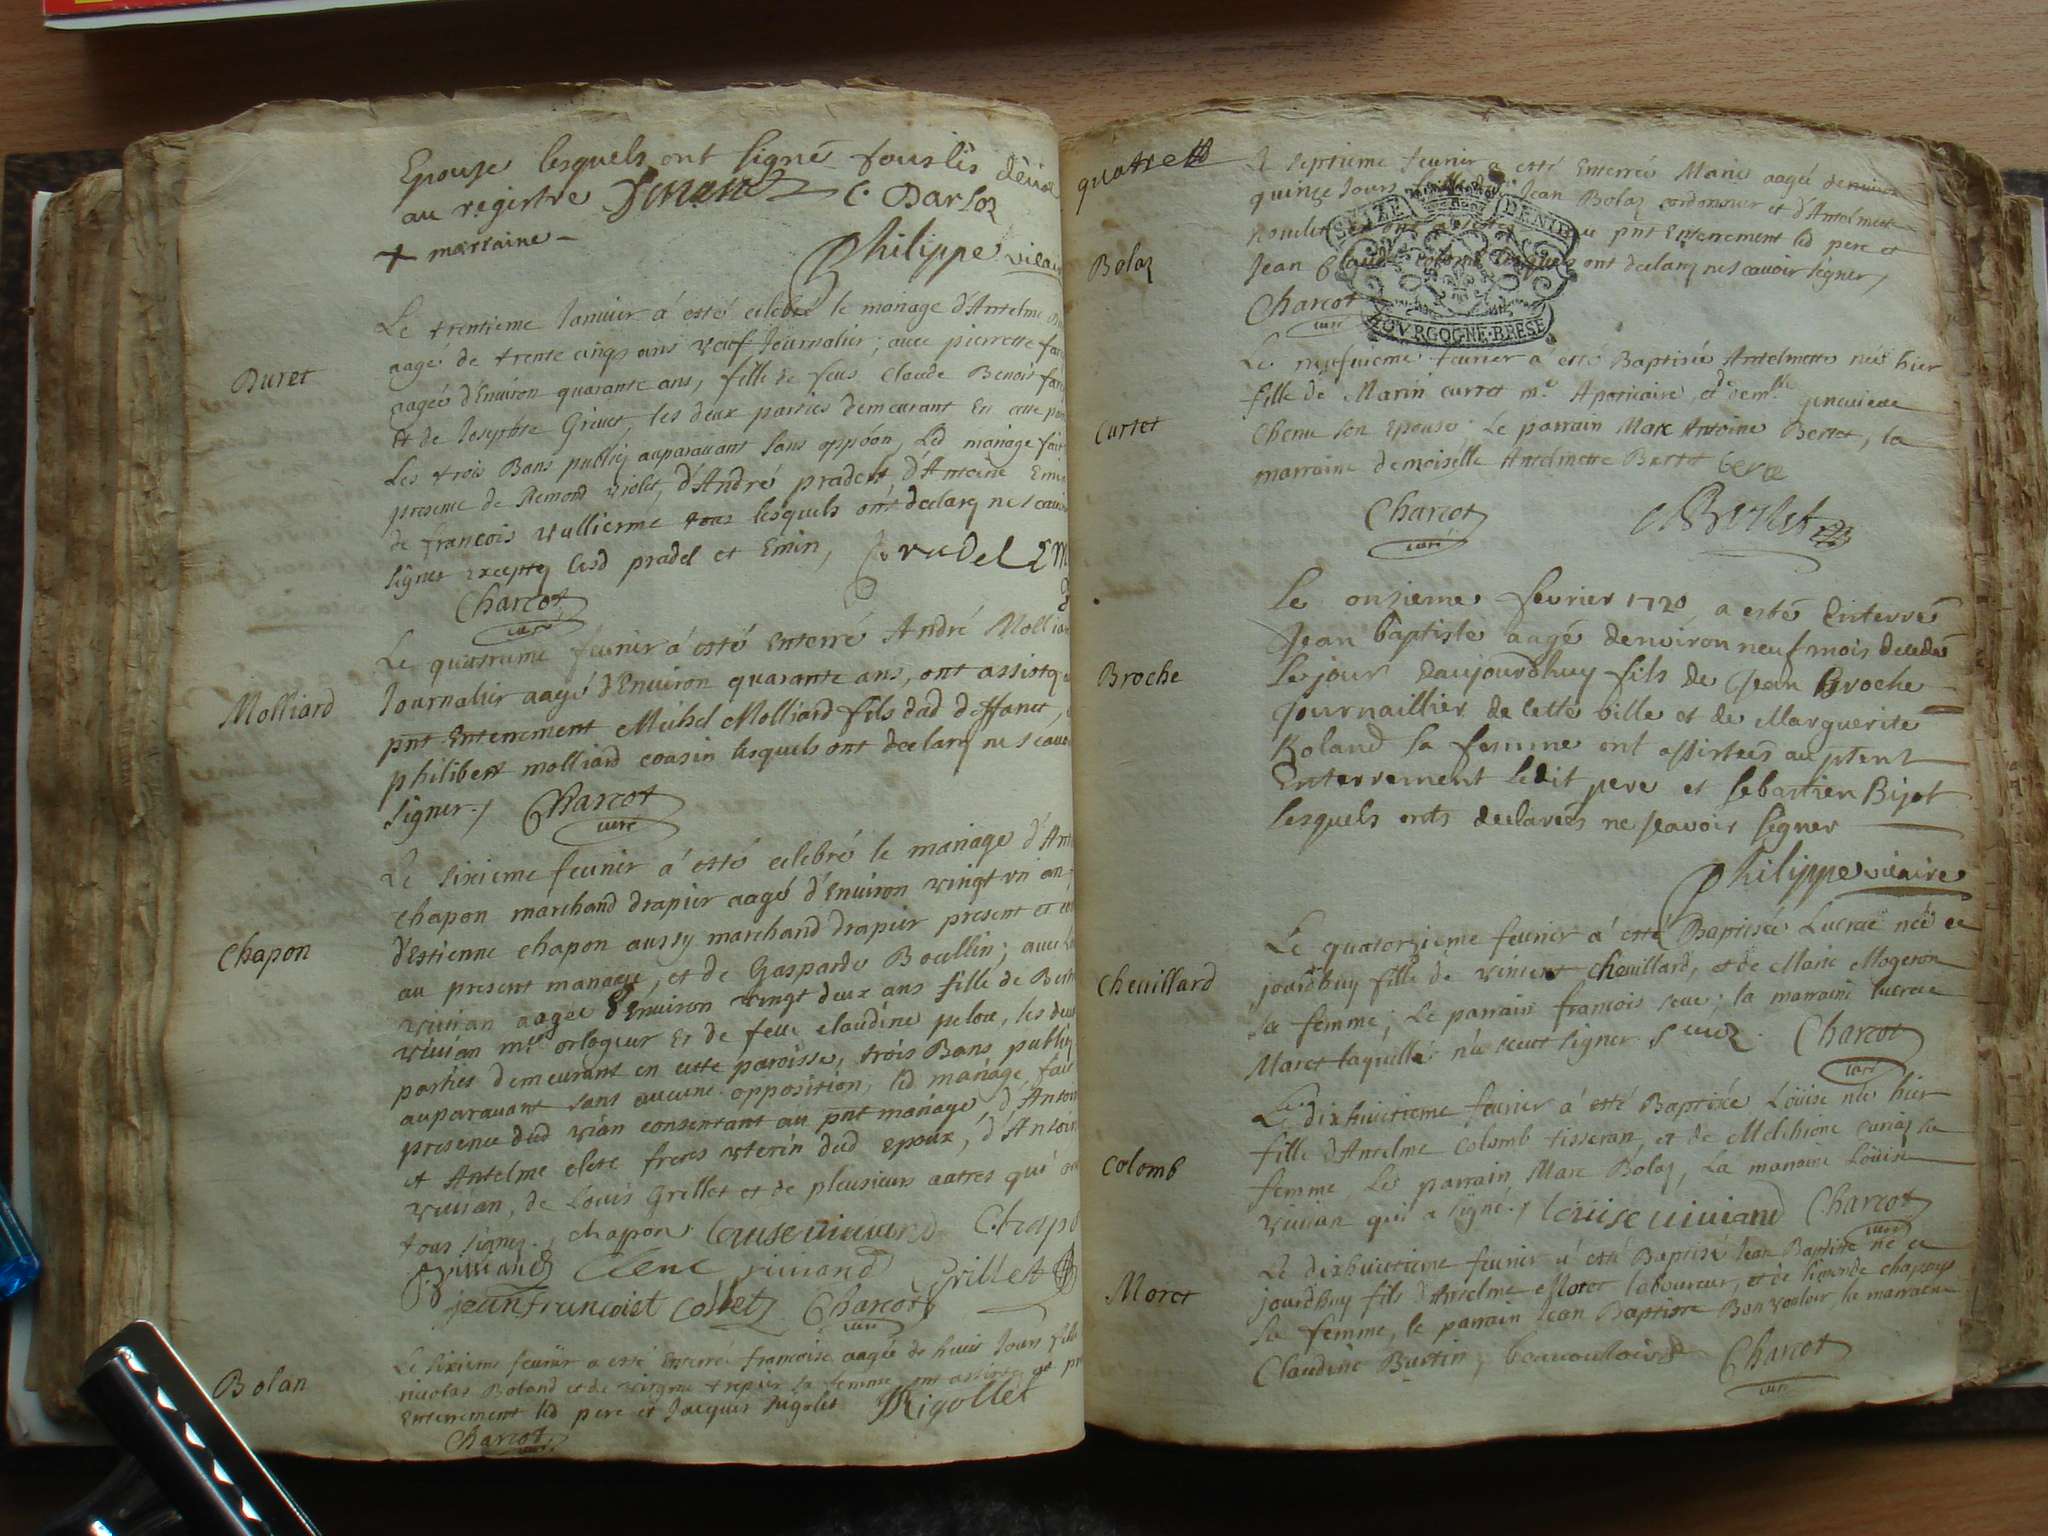 Epouse lesquels ont signé tous lès deux
au registre C. Darloz
+ marraine -
Philippe vicaire
Duret
Le trentieme Janvier á esté celebré le mariage d'Antelme
aagé de trente cinq ans veuf Journalier; avec pierrette
aagée d'Environ quarante ans, fille de feus Claude Benoist
et de Josephte Grivet, les deux parties demeurant En cette
Les trois Bans publiéz auparavant sans oppóon, Led mariage fait
presence de Remond violet, d'André pradel, d'Antoine Emin
de francois vulliermé tous lesquels ont declarez ne scavoir
signer exceptez lesd pradel et Emin, pradel EM
Charcot
curé
Molliard
Le quatrieme fevrier á esté Enterré André Molliard
Journalier aagé d'Environ quarante ans, ont assisté
pnt Enterrement Michel Molliard fils dud deffunct,
philibert molliard cousin lesquels ont declarez ne scavoir
signer./ Charcot
curé
Chapon
Le sixieme fevrier á esté celebré le mariage d'Ant
chapon marchand drapier aagé d'Environ vingt un an,
d'Estienne chapon aussy marchand drapier present et
au present mariage, et de Gasparde Boullin; avec
vivian aagée d'Environ vingt deux ans fille de
vivian mtre orlogeur Et de feue claudine pelou, les deux
parties demeurant en cette paroisse, trois Bans publiéz
auparavant sans aucune opposition, led mariage fait
presence dud vian consentant au pnt mariage, d'Antoine
et Antelme clerc freres uterin dud Epoux, d'Antoine
vivian, de Loüis Grillet et de pleusieurs autres qui
tous signez., chapon. louise viviand Chapo
viviand Clerc viviand Grillet
jean francoist collet Charcot
curé
Bolan
Le sixieme fevrier a esté Enterré francoise aagée de huit Jours fille
nicolas Boland et de sa femme ont assisté
Enterrement led pere et Jacques rigolet JRigollet
Charcot
quatre
Bolaz
Le septieme fevrier a esté Enterrée Marie aagée denviron
quinze Jours Jean Bolaz cordonnier et d'Antelmette
pnt Enterrement led pere et
Jean Claude ont declarez ne scavoir signer /
Charcot
curé
SEIZE DENIE
BOVRGOGNE·BRESE
Curtet
Le neufvieme fevrier á esté Baptisée Antelmette née hier
fille de Marin curtet mre Apoticaire, et demlle genevieve
Chenu son Epouse. Le parrain Marc Antoine Bertet, la
marraine demoiselle Antelmette Bertet
Charcot
curé
Broche
Le onsieme fevrier 1720 a esté Enterré
Jean baptiste aagé denviron neuf mois decedé
Le jour Daujourdhuy fils de Jean Broche
Journaillier de cette ville et de Marguerite
Roland sa femme ont assistees au ptent
Enterrement ledit pere et sebastien Bijot
lesquels onts declarees ne scavoir signer
Philippe vicaire
Chevillard
Le quatorzieme fevrier á esté Baptisée Lucrece née ce
jourdhuy fille de vincent chevillard, et de Marie Mogeron
sa femme; Le parrain francois seve; la marraine lucrece
Maret laquelle n'a sceut signer. Charcot
curé
Colomb
Le dixhuictieme fevrier á esté Baptisée Loüise née hier
fille d'Antelme Colomb tisseran, et de Melchione curiaz sa
femme, Le parrain Marc Bolaz, La marraine Loüise
vivian qui a signé./ louise viviand Charcot
curé
Moret
Le dixhuictieme fevrier á esté Baptisé Jean Baptiste né ce
jourdhuy fils d'Antelme Moret laboureur, et de
sa femme, le parrain Jean Baptiste Bonvouloir, la marraine
Claudine Burtin, bonvouloir Charcot
curé